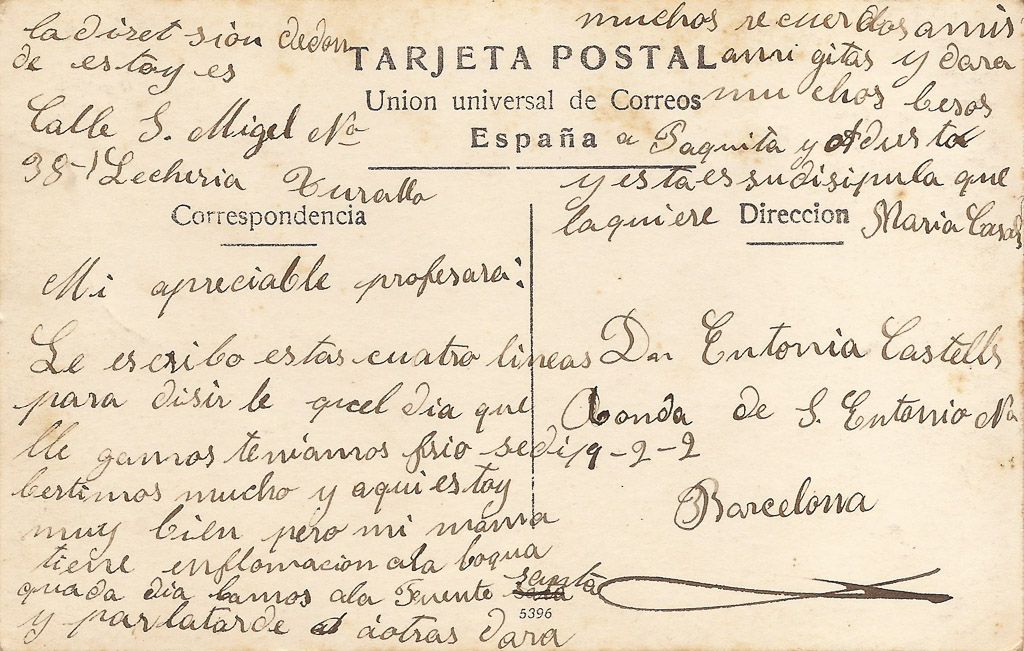 la diret sion dedon
de estoy es
Calle S. Migel No
38-1 Lecheria
muchos recuerdos amis
ami gitas y dara
muchos besos
a Paquita y
y esta es su disipula que
la quiere Maria Casals
TARJETA POSTAL
Union universal de Correos
España
Correspondencia
Mi apreciable profesara:
Le escribo estas cuatro lineas
para disir le quel dia que
lle gamos teniamos frio se di
bertimos mucho y aqui estoy
muy bien pero mi mama
tiene enflomacion ala boqua
quada dia bamos ala Fuente santa
y parlatarde a aotras dara
Direccion
Dn Entonia Castells
Ronda de S. Entonio No
19-2-2
Barcelona
5396